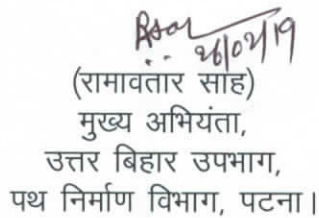 26/02/19
(रामावतार साह)
मुख्य अभियंता,
उत्तर बिहार उपभाग,
पथ निर्माण विभाग, पटना।